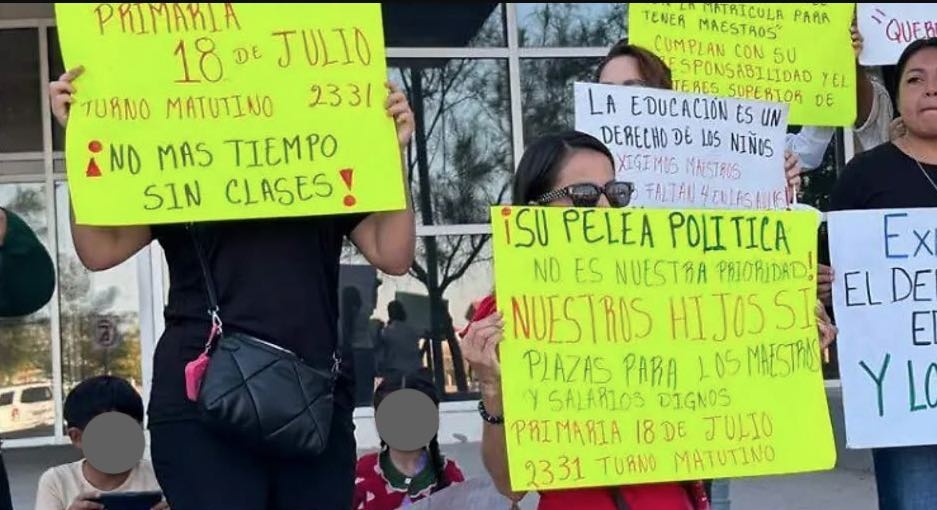 PRIMARIA
18 DE JULIO
TURNO MATUTINO 2331
¡NO MAS TIEMPO
SIN CLASES!
LA MATRÍCULA PARA
TENER MAESTROS"
CUMPLAN CON SU
RESPONSABILIDAD Y EL
SUPERIOR DE
LA EDUCACIÓN ES UN
DERECHO DE LOS NIÑOS
XIGIMOS MAESTROS
FALTAN 4 EN LAS AULAS!
¡SU PELEA POLITICA
NO ES NUESTRA PRIORIDAD!
NUESTROS HIJOS SI
PLAZAS PARA LOS MAESTROS
Y SALARIOS DIGNOS
PRIMARIA 18 DE JULIO
2331 TURNO MATUTINO
EL
Y